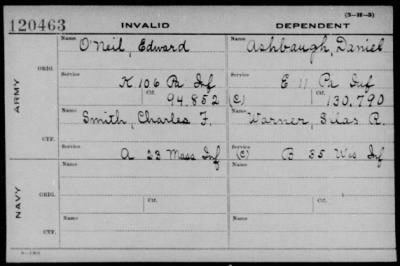 (3-H-3)
120463 INVALID DEPENDENT
Name Name
O'Neil, Edward Ashbaugh, Daniel
ORIG.
Service Service
K 106 Pa Inf E 11 Pa Inf
Ctf. 94.852 (C) Ctf. 130.790
ARMY
Name Name
Smith, Charles F. Warner, Silas R.
CTF.
Service Service
A 23 Mass Inf (C) B 35 Wis Inf
Name Ctf. Name Ctf.
ORIG.
Service Service
NAVY
Ctf. Ctf.
Name Name
CTF.
Service Service